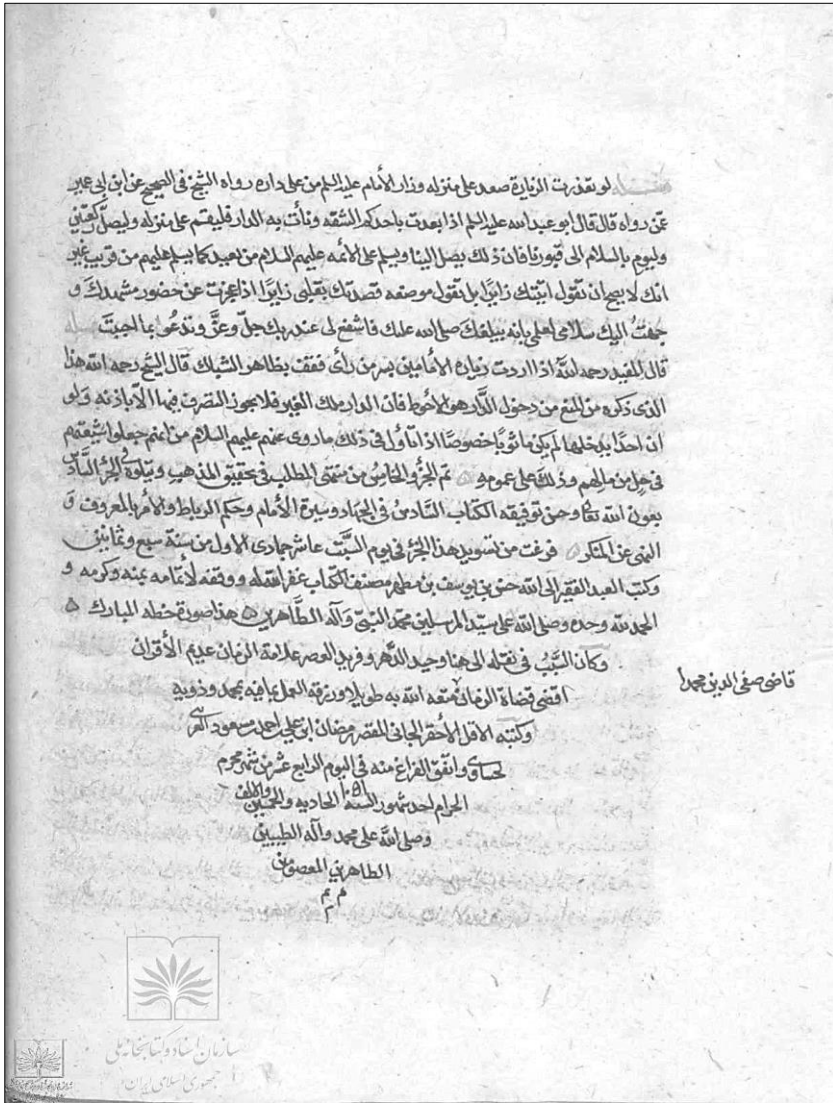 لو تعذرت الزيارة صعد على منزله وزار الأمام عليه السلم من على داره رواه الشيخ فى الصحيح عن ابن ابى عمير
عمّن رواه قال قال ابو عبد الله عليه السلم اذا بعدت باحدكم الشقه ونأت به الدار فليقم على منزله وليصل ركعتين
وليوم بالسلام الى قبورنا فان ذلك يصل الينا ويسلم على الأئمه عليهم السلام من بعيد كما يسلم عليهم من قريب غير
انك لا يصح ان تقول اتيتك زايرًا بل تقول موضعه قصدتك بقلبى زايرًا اذا عجزت عن حضور مشهدك و
جهتُ اليك سلامى لعلمى بانه يبلغك صلى الله عليك فاشفع لى عند ربك جلّ وعزّ وتدعُوا بما احببت
قال المفيد رحمه الله اذا اردت زيارة الأمامين بسر من رأى فقف بظاهر الشباك قال الشيخ رحمه الله هذا
الذى ذكره من المنع من دخول الدّار هو الأحوط فان الدار ملك الغير فلا يجوز التصرف فيها الاّ باذنه وَلو
ان احدًا يدخلها لم يكن مأثومًا خصوصًا اذا تأول فى ذلك ما روى عنهم عليهم السلام من انهم جعلوا شيعتهم
فى حل من مالهم وذلك على عمومه تم الجزُو الخامسُ من منتهى المطلب فى تحقيق المذهب ويتلوهُ الجزُ السَّادس
بعون الله تعا وحسن توفيقه الكتاب السَّادسُ فى الجهَاد وسيرة الأمام وحكم الرباط والأمر بالمعروف وَ
النهى عن المنكر فرغت من تسويد هذا الجزُ فى يوم السَّبت عاشر جمادى الاول من سنة سبع وثمانين
وكتب العبد الفقير الى الله حسن بن يوسف بن مطهر مصنف الكتاب غفر الله له ووفقه لاتمامه بمنه وكرمه و
الحمد لله وحده وصلى الله على سيّد المرسلين محمد النبىّ وآله الطَّاهرين هذا صورة خطه المبارك
وكان السَّبَبُ فى نقله الى هنا وحيد الدّهر وفريد العصر علامة الزمان عديم الأقران
اقضى قضاة الزمان متعه الله به طويلا ورزقه العمل بما فيه بمحمد وذويه
قاضى صفى الدين محمدا
وكتبه الاقل الأحقر الجانى المقصر رمضان ابن على بن احمد بن مسعود
واتفق الفراغ منه فى اليوم الرابع عشر من شهر محرم
الحرام احد شهور السنه ١٠٥١ الحاديه والخمسين والالف
وصلى الله على محمد وآله الطيبين
الطاهرين المعصومين
سازمان اسناد و کتابخانه ملی
جمهوری اسلامی ایران